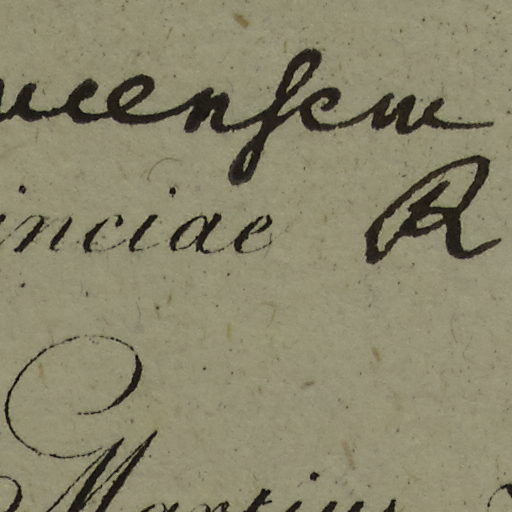 ucensem
inciae R
Martius